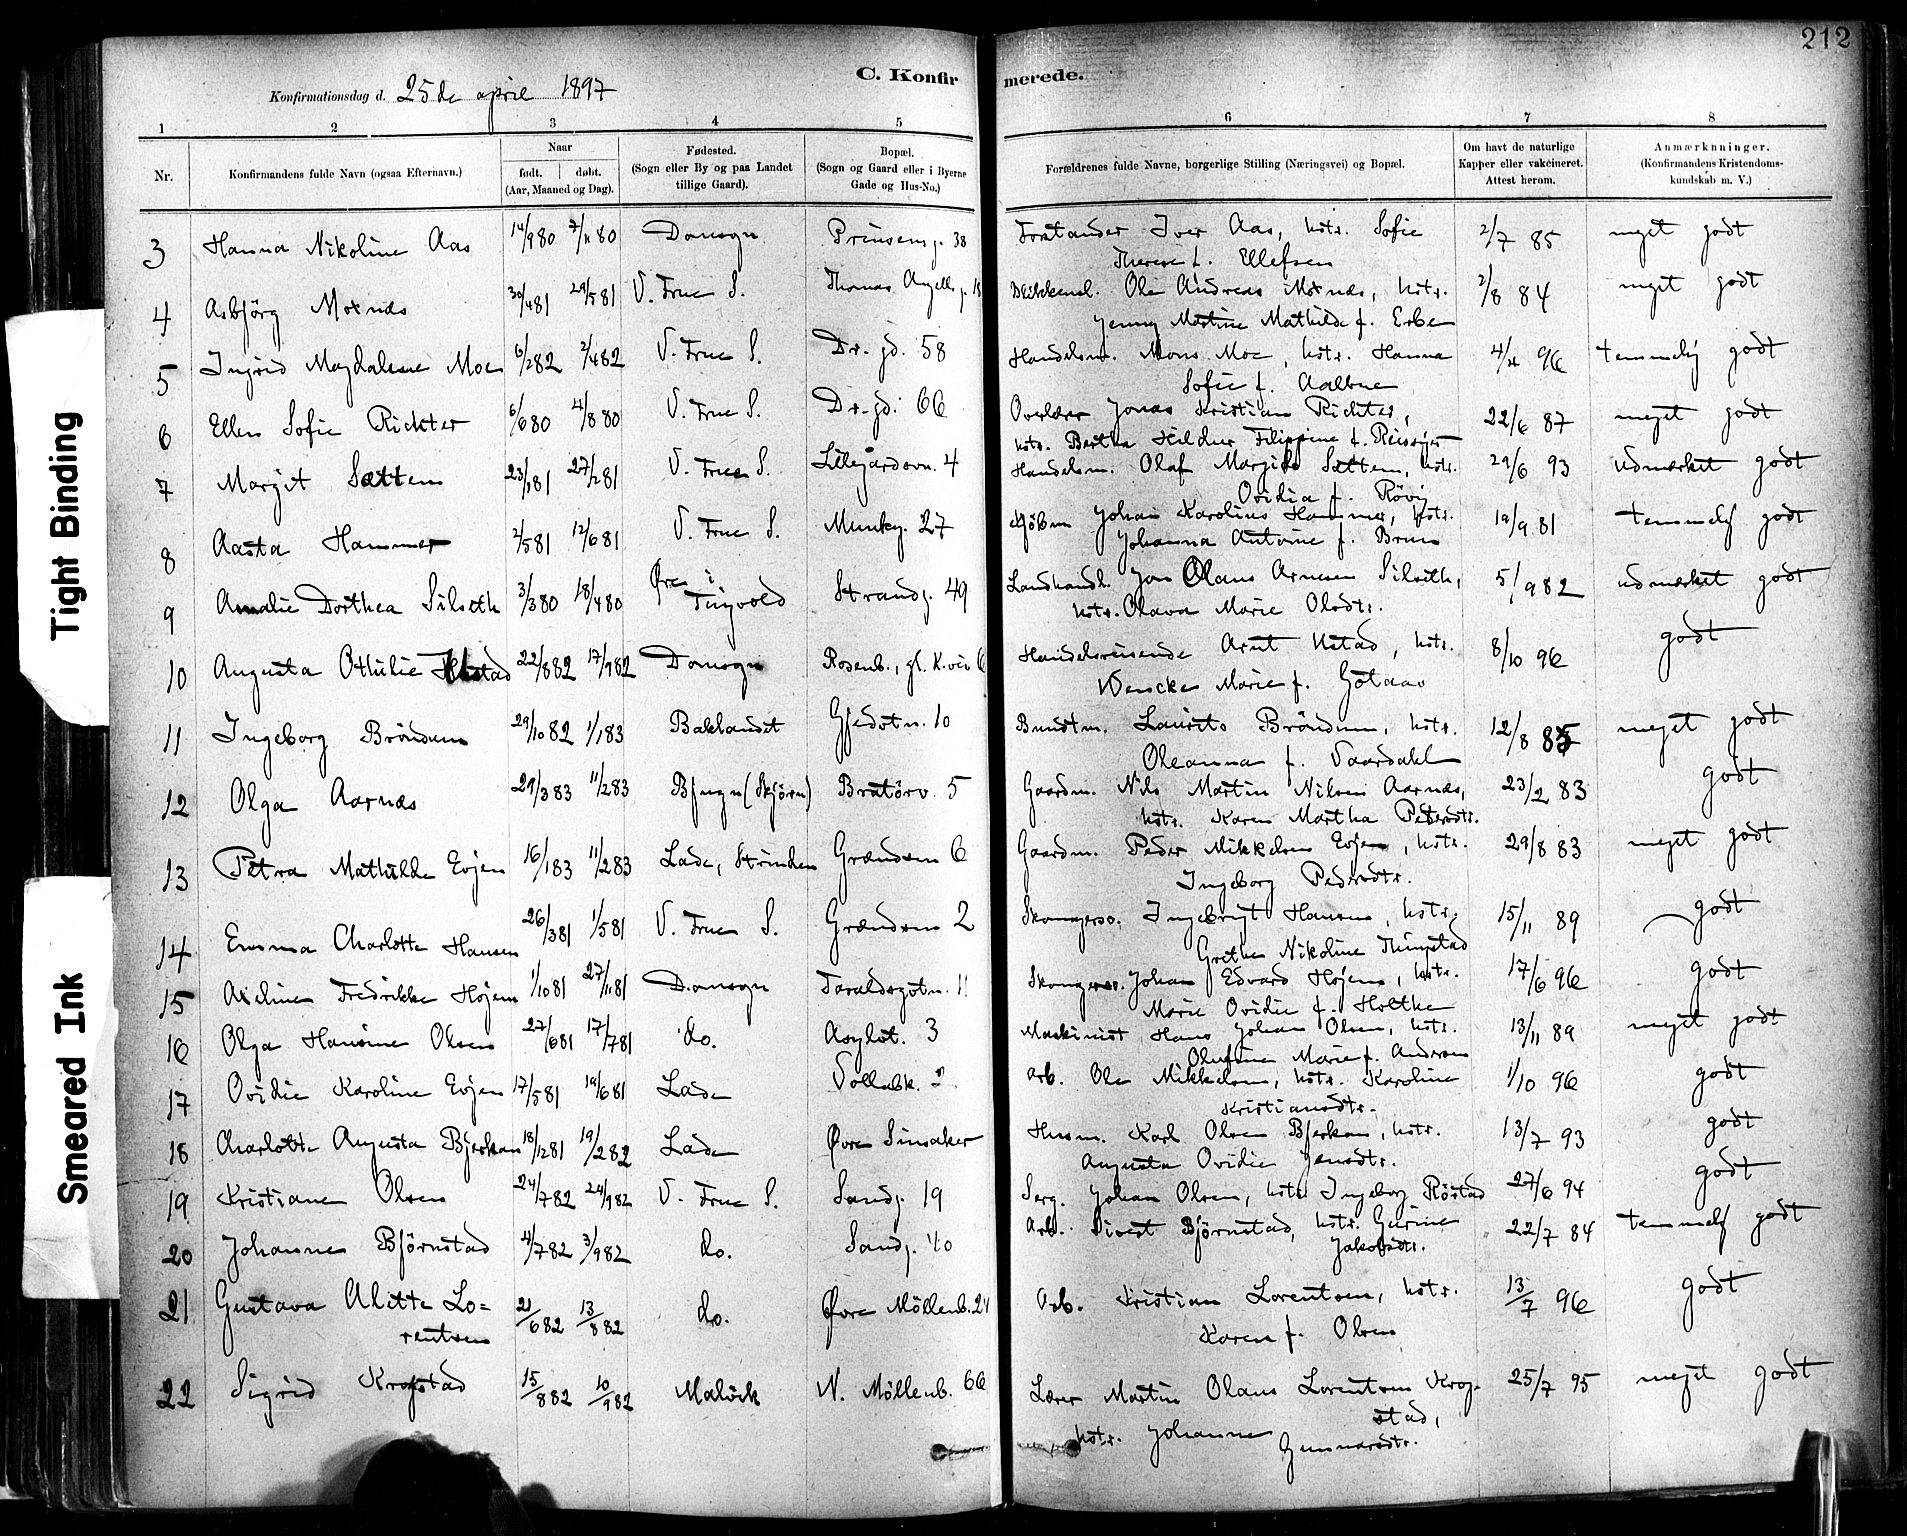 212
C. Konfirmerede.
Konfirmationsdag d. 25de april 1897
1 2 3 4 5 6 7 8
Nr.
Konfirmandens fulde Navn (ogsaa Efternavn.)
Naar
født. døbt.
(Aar, Maaned og Dag).
Fødested.
(Sogn eller By og paa Landet
tillige Gaard).
Bopæl.
(Sogn og Gaard eller i Byerne
Gade og Hus-No.)
Forældrenes fulde Navne, borgerlige Stilling (Næringsvei) og Bopæl.
Om havt de naturlige
Kapper eller vakcineret.
Attest herom.
Anmærkninger.
(Konfirmandens Kristendoms-
kundskab m. V.)
3 Hanna Nikoline Aas 14/9 80 7/11 80 Domsogn Prinsensg. 38 Forstander Iver Aas, hstr. Sofie 2/7 85 meget godt
Therese f. Ellefsen
4 Asbjörg Moxnæs 30/4 81 29/5 81 V. Frue S. Thomas Angells g. 18 Blikkensl. Ole Andreas Moxnæs, hstr. 2/8 84 meget godt
Jenny Martine Mathilde f. Erbe
5 Ingrid Magdalene Moe 6/2 82 2/4 82 V. Frue S. Dr. gd. 58 Handelsm. Mons Moe, hstr. Hanna 4/4 96 temmelig godt
Sofie f. Aalbue
6 Ellen Sofie Richter 6/6 80 4/8 80 V. Frue S. Dr. gd. 66 Overlærer Jonas Kristian Richter, 22/6 87 meget godt
hstr. Bertha Hildur Filippine f.
7 Margit Sættem 23/1 81 27/2 81 V. Frue S. Lillegårdsvn. 4 Handelsm. Olaf Sættem, hstr. 29/6 93 udmærket godt
Ovidia f. Rövig
8 Aasta Hammer 2/5 81 12/6 81 V. Frue S. Munkg. 27 Kjöbm Johan Karolius Hammer, hstr. 19/9 81 temmelig godt
Johanna Antonie f. Bruun
9 Amalie Dorthea Silseth 3/3 80 18/4 80 Øre i Strandg. 49 Landhandl. Jon Olaus Arnesen Silseth, 5/9 82 udmærket godt
Tingvold hstr. Olava Marie Olsdtr.
10 Augusta Othilie Ustad 22/8 82 17/9 82 Domsogn Rosenb., gl. K.vei 6 Handelsreisende Arnt Ustad, hstr. 8/10 96 godt
Wencke Marie f. Götaas
11 Ingeborg Bröndum 29/10 82 1/1 83 Baklandet Gjedstn. 10 Bundtm. Laurits Bröndum, hstr. 12/8 85 meget godt
Oleanna f. Vaardahl
12 Olga Aarnæs 29/3 83 11/2 83 Bjugn (Skjörn) Bratörv. 5 Gaardm. Nils Martin Nilsen Aarnæs, 23/2 83 godt
hstr. Karen Martha Petersdtr.
13 Petra Mathilde Evjen 16/1 83 11/2 83 Lade, Strinden Grændsen 6 Gaardm. Peder Mikkelsen Evjen, hstr. 29/8 83 meget godt
Ingeborg Pedersdtr.
14 Emma Charlotte Hansen 26/3 81 1/5 81 V. Frue S. Grændsen 2 Skomagersv. Ingebrigt Hansen, hstr. 15/11 89 godt
Grethe Nikoline Thingstad
15 Axeline Fredrikke Höjem 1/10 81 27/11 81 Domsogn Taraldsgötn. 11 Skomagersv. Johan Edvard Höjem, hstr. 17/6 96 godt
Marie Ovidie f. Holthe
16 Olga Hansine Olsen 27/6 81 17/7 81 do. Asylst. 3 Maskinist Hans Johan Olsen, hstr. 13/11 89 meget godt
Olufine Marie f. Andersen
17 Ovidie Karoline Evjen 17/5 81 19/6 81 Lade Vollabk. Arb. Ole Mikkelsen, hstr. Karoline 1/10 96 godt
Kristiansdtr.
18 Charlotte Augusta Bjerkan 18/12 81 19/2 82 Lade Øvre Sinsaker Husm. Karl Olsen Bjerkan, hstr. 13/7 93 godt
Augusta Ovidie Jensdtr.
19 Kristiane Olsen 24/7 82 24/9 82 V. Frue S. Sandg. 19 Serg. Johan Olsen, hstr. Ingeborg Röstad 27/6 94 godt
20 Johanne Björnstad 4/7 82 3/9 82 do. Sandg. 40 Arb. Sivert Björnstad, hstr. Gurine 22/7 84 temmelig godt
Jakobsdtr.
21 Gustava Alette Lo= 21/6 82 13/8 82 do. Øvre Möllenb. 24 Arb. Kristian Lorentsen, hstr. 13/7 96 godt
rentsen Karen f. Olsen
22 Sigrid Krogstad 15/8 82 10/9 82 Malvik N. Möllenb. 66 Lærer Martin Olaus Lorentsen Krog- 25/7 95 meget godt
stad,
hstr. Johanne Gunnarsdtr.
Tight Binding
Smeared Ink